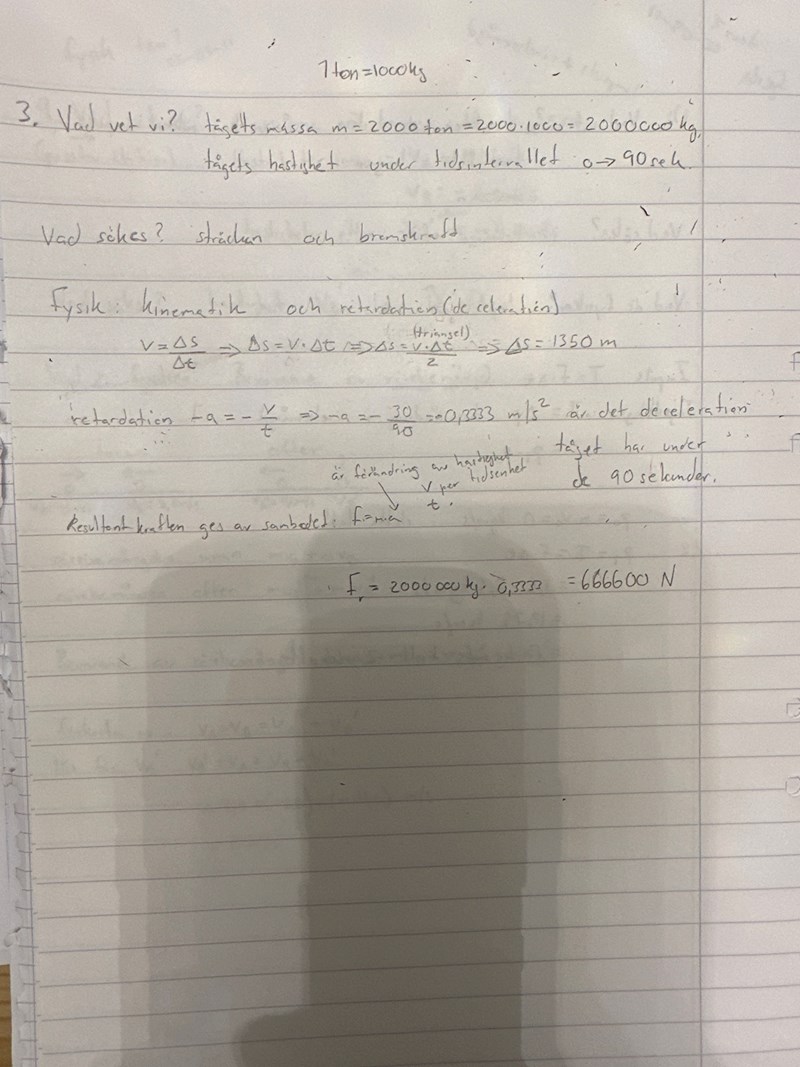 1 ton = 1000 kg
3. Vad vet vi? tågets massa m = 2000 ton = 2000·1000 = 2000000 kg.
tågets hastighet under tidsintervallet 0→90 sek.
Vad sökes? sträckan och bromskraft
Fysik: kinematik och retardation (deceleration)
(triangel)
V = Δs/Δt ⇒ Δs = V·Δt ⇒ Δs = V·Δt/2 ⇒ Δs = 1350 m
retardation -a = -V/t ⇒ -a = -30/90 = -0,3333 m/s² är det deceleration
tåget har under
de 90 sekunder.
är förändring av hastighet
V per tidsenhet
t.
Resultantkraften ges av sambadet: F=m·a
F = 2000 000 kg · 0,3333 = 666600 N